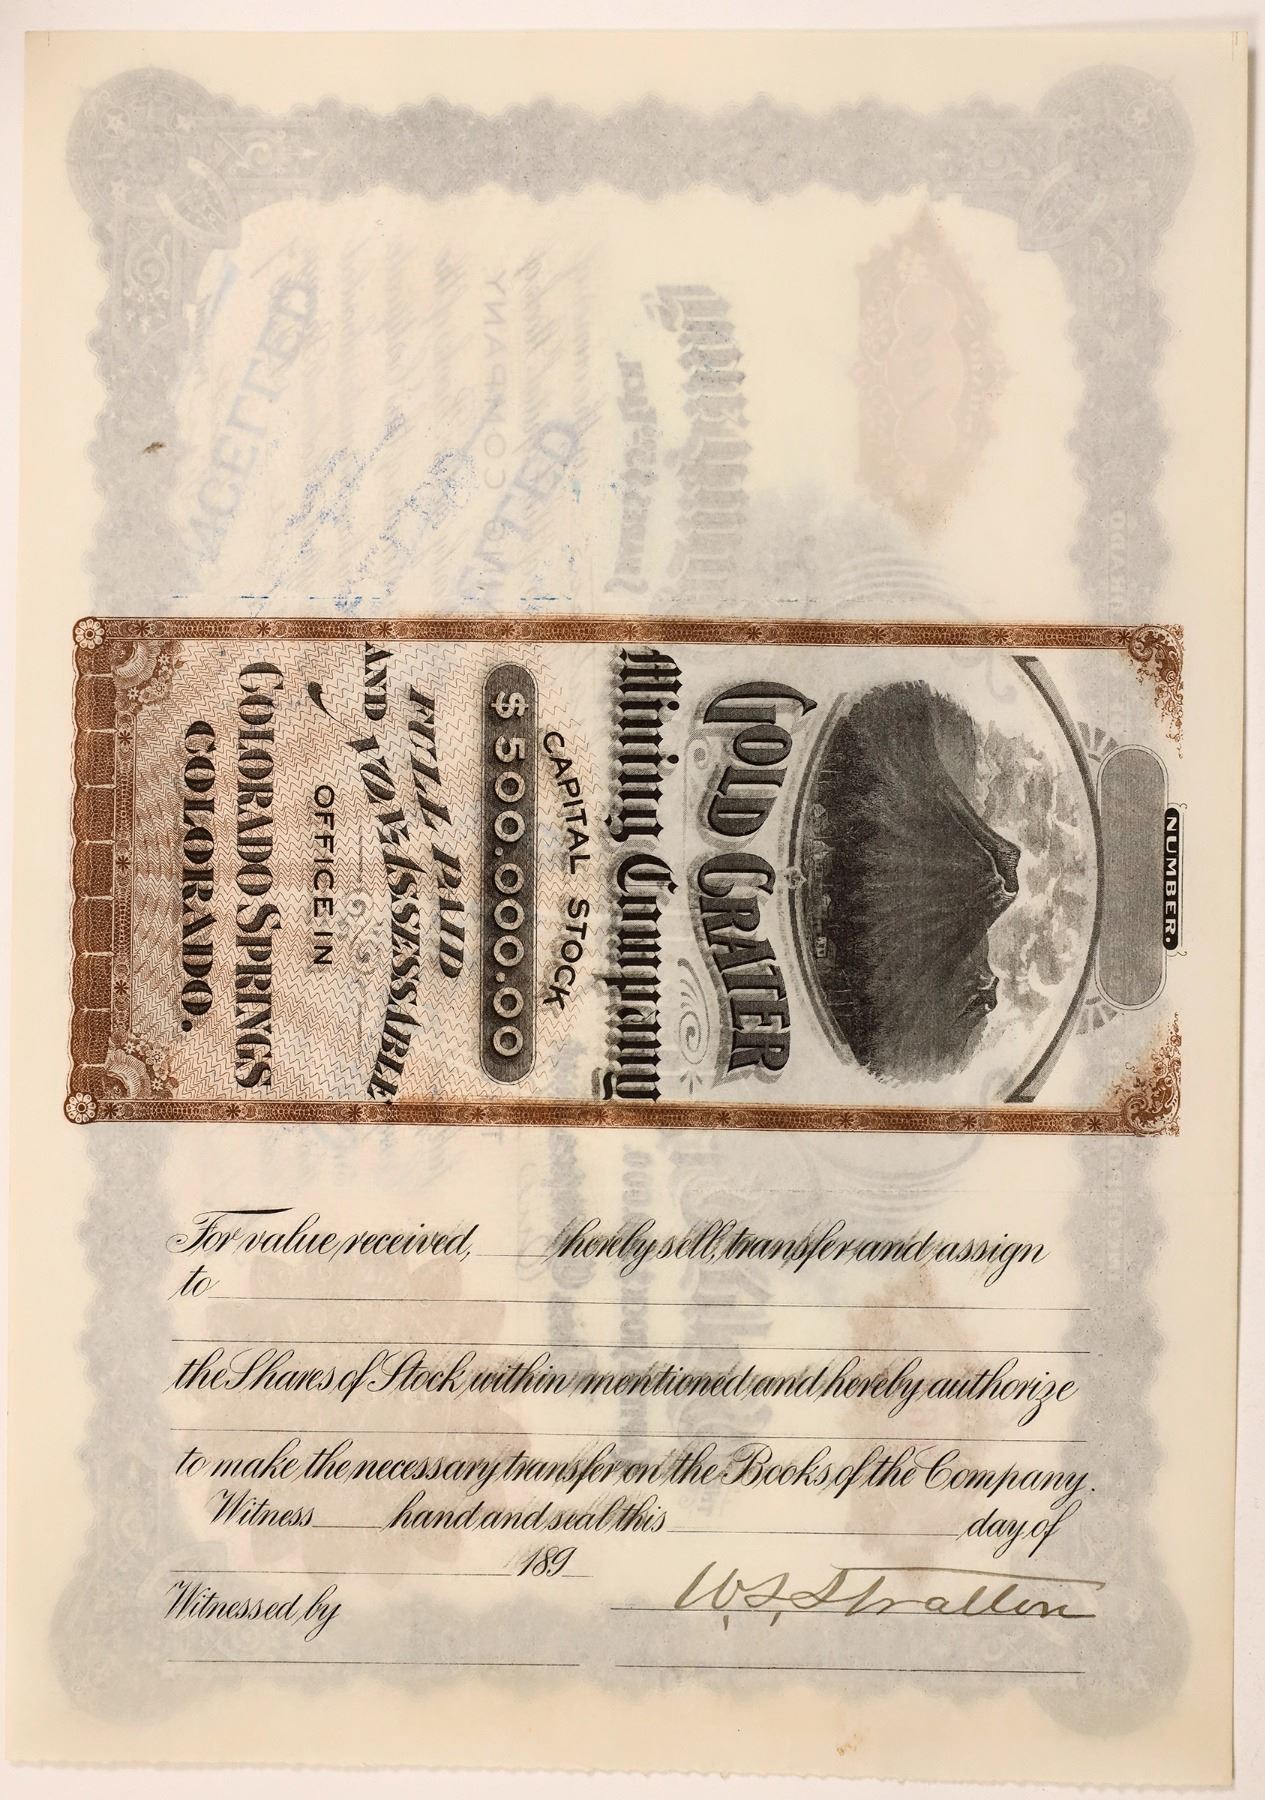 NUMBER.
GOLD CRATER
Mining Company
CAPITAL STOCK
$500.000.00
FULL PAID
AND NON ASSESSABLE
OFFICE IN
COLORADO SPRINGS
COLORADO.
CANCELLED
COMPANY
For value received, hereby sell, transfer and assign
to
the Shares of Stock within mentioned and hereby authorize
to make the necessary transfer on the Books of the Company.
Witness hand and seal this day of
189
Witnessed by
W.S. Stratton